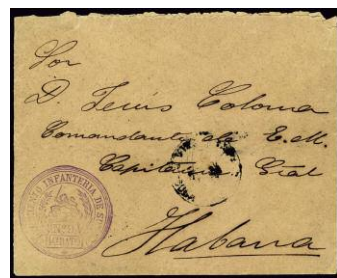 Sor
D. Jesús Coloma
Comandante de E.M.
Capitanía Gral
Habana
INFANTERIA DE